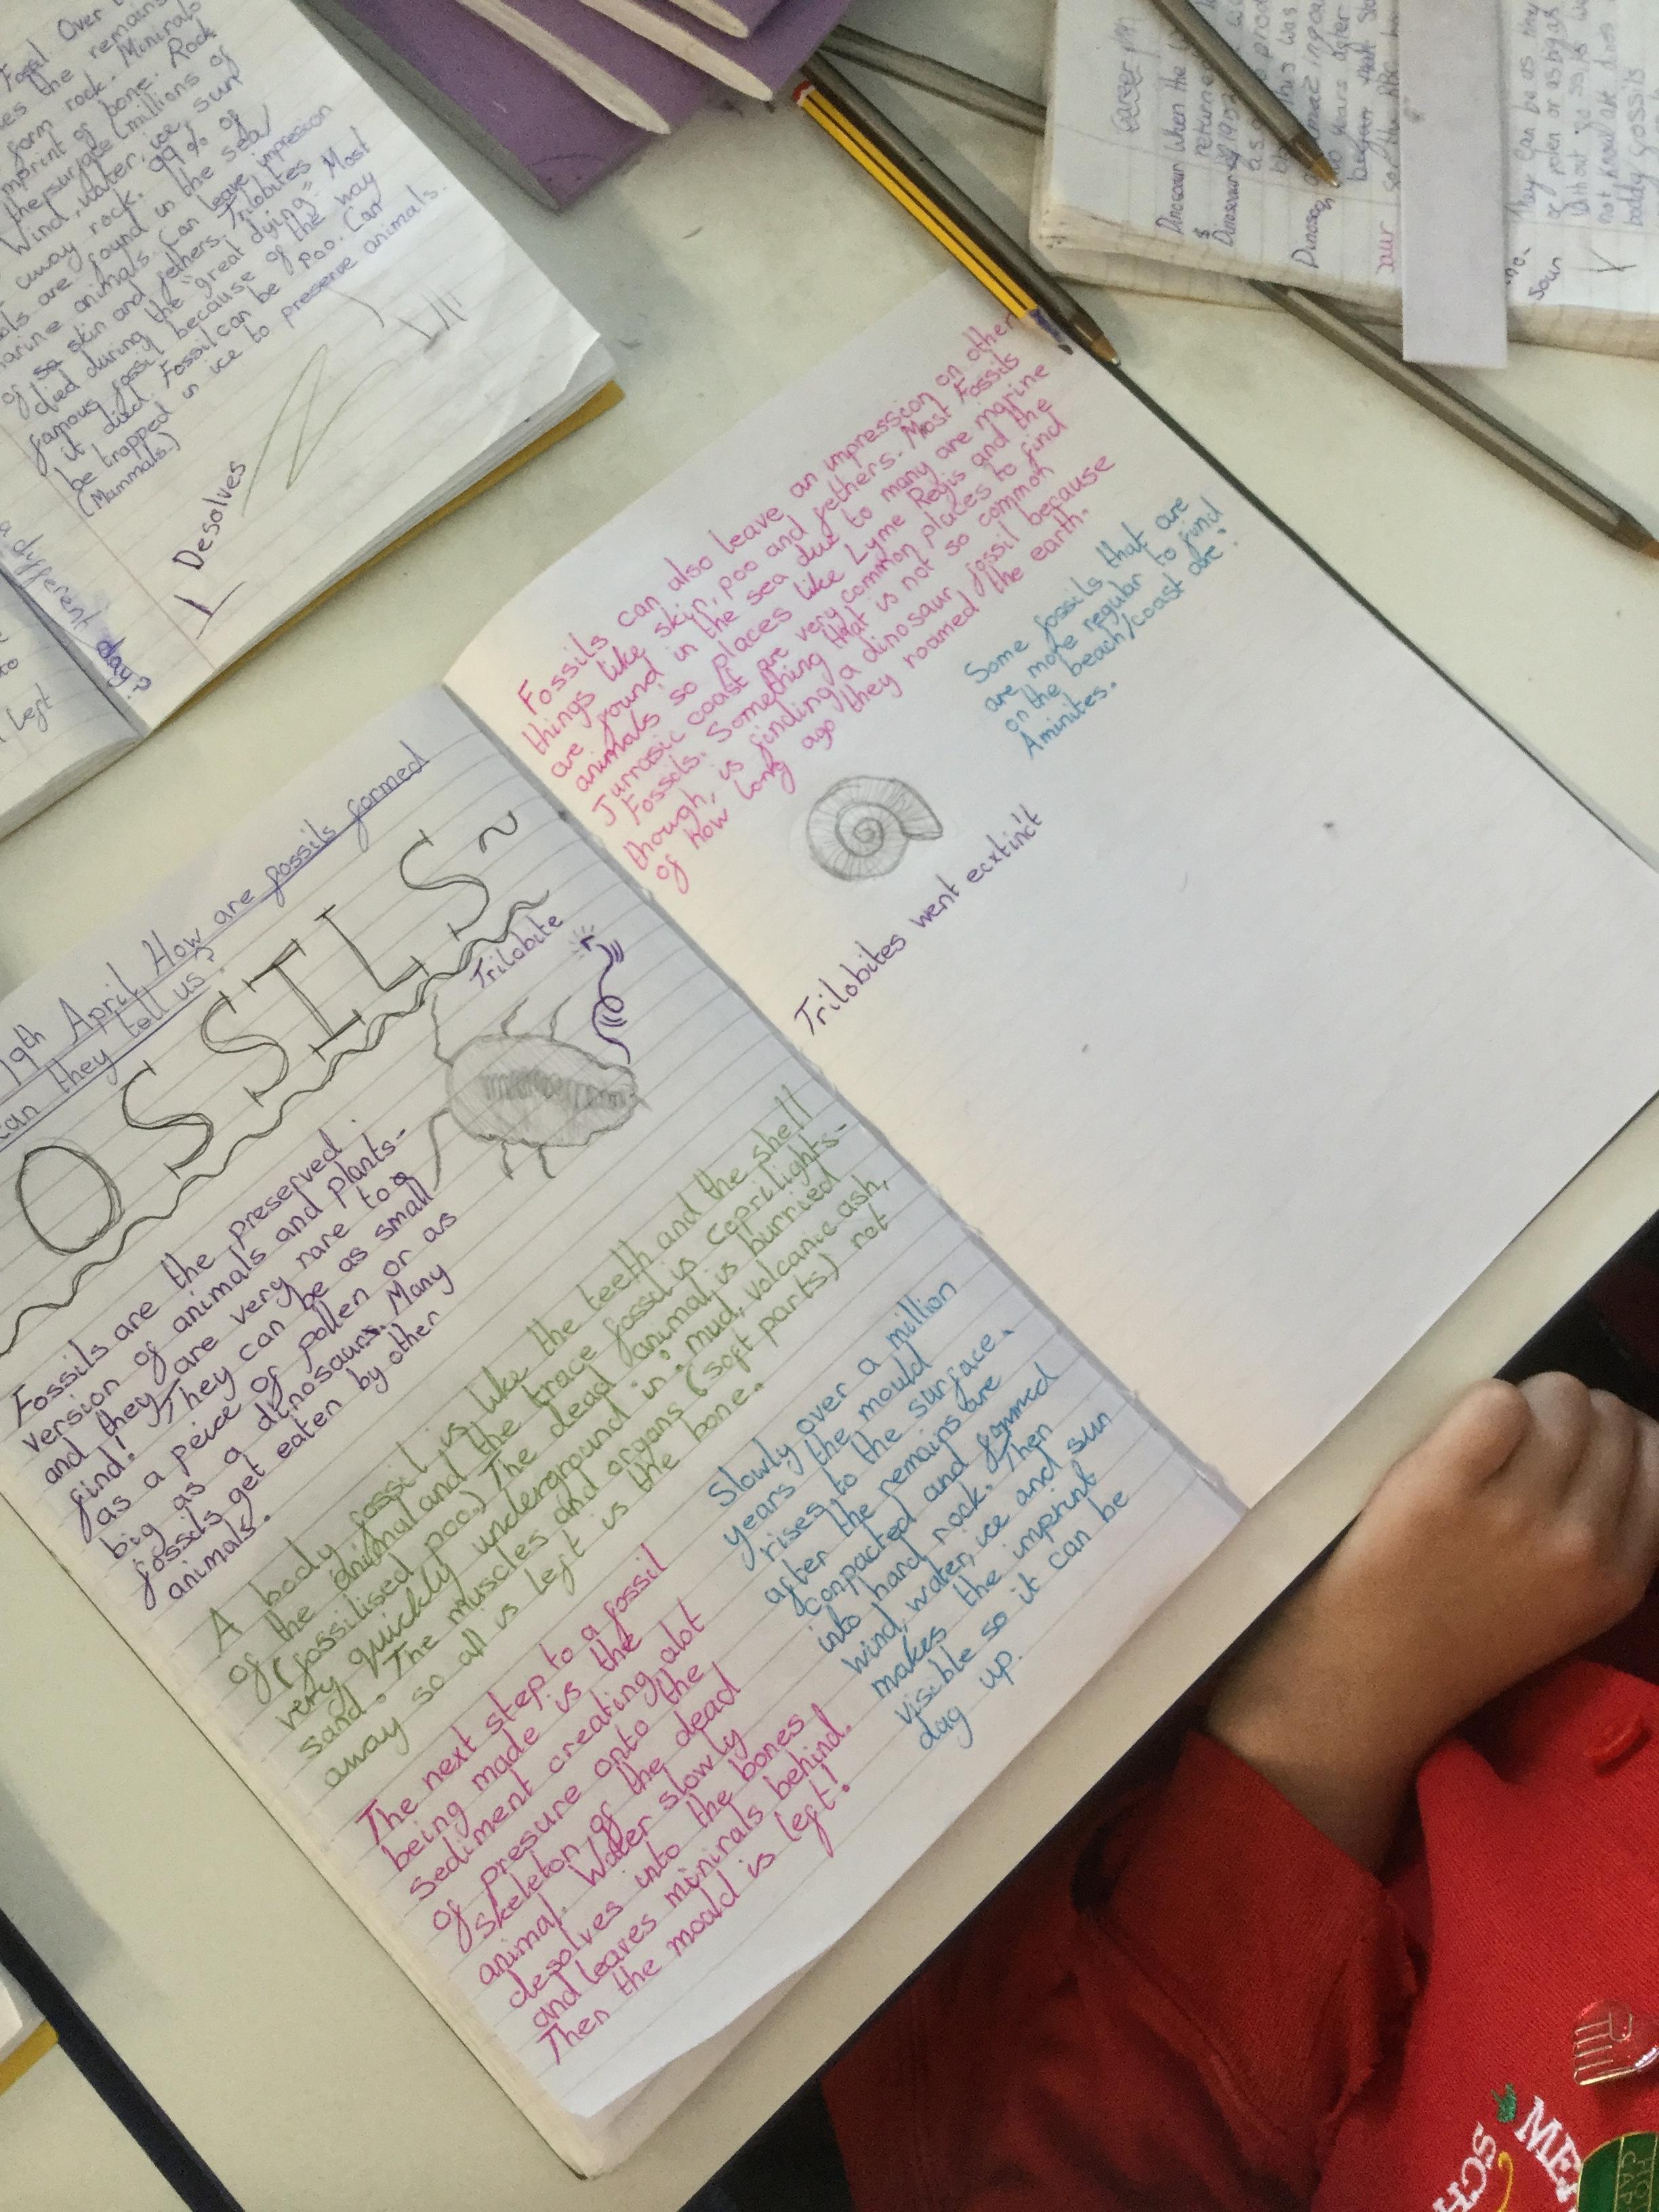 19th April How are fossils formed
can they tell us?
OSSILS
Trilobite
Fossils are the preserved
version of animals and plants-
and they are very rare to
find! They can be as small
as a peice of pollen or as
big as a dinosaur. Many
fossils get eaten by other
animals.
A body fossil is like the teeth and the shell
of the animal and the trace fossil is Coprilights-
(fossilised poo.) The dead animal is burried
very quickly underground in: mud, volcanic ash,
sand. The muscles and organs (soft parts) rot
away so all is left is the bone.
The next step to a fossil
being made is the
Sediment creating alot
of presure onto the
skeleton of the dead
animal. Water slowly
desolves into the bones
and leaves minirals behind.
Then the moald is left!
Slowly over a million
years the mould
rises to the surface.
after the remains are
conpacted and formed
into hard rock. Then
wind, water, ice and sun
makes the imprint
visible so it can be
dug up.
Fossils can also leave an impression on other
things like skin, poo and fethers. Most Fossils
are found in the sea due to many are marine
animals so places like Lyme Regis and the
Jurrasic coast are very common places to find
Fossils. Something that is not so common
though, is finding a dinosaur fossil because
of how long ago they roamed the earth.
Some fossils that are
are more regular to find
on the beach/coast are:
Aminites.
Trilobites went ecxtinct
Fossil Over
the remains
form rock. Minirals
imprint of bone. Rock
the surface (millions of
Wind, water, ice, sun
away rock. 99% of
are found in the sea/
marine animals. Can leave impression
of skin and fethers. Trilobites
died during the "great dying" Most
famous fossil because of the way
it died. Fossil can be poo. Can
be trapped in ice to preserve animals.
(Mammals)
Desolves
a different
days
left
Dinosaur When the
returned
1952
Dinosaur
years after
began
They can be as
of polen or as big as
not
body fossils
ME
SCH